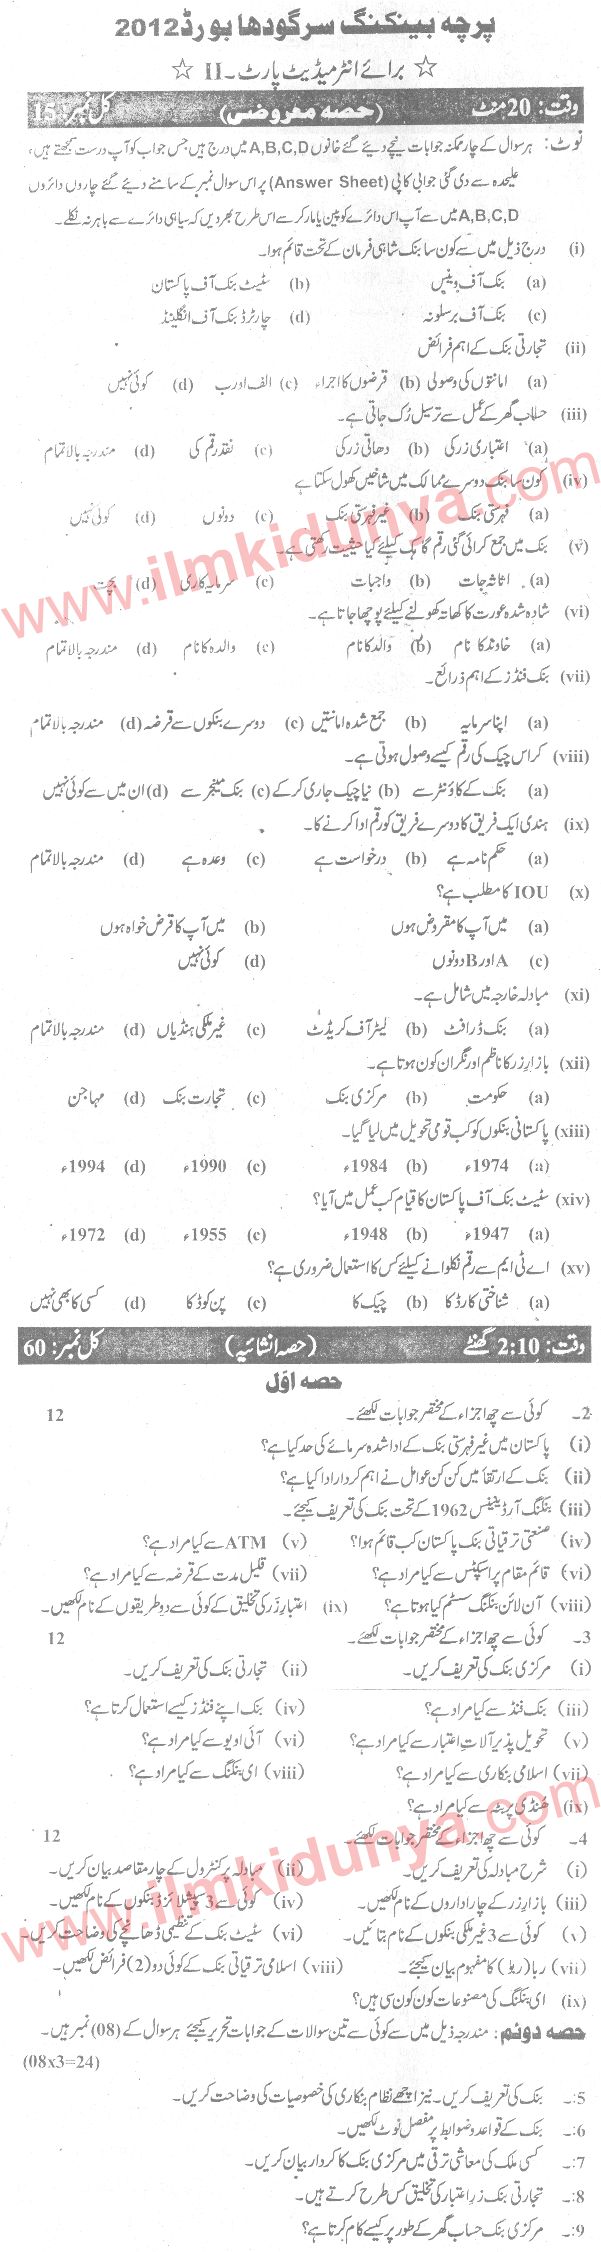 پرچہ بینکنگ سرگودھا بورڈ 2012
☆ برائے انٹرمیڈیٹ پارٹ۔ II ☆
وقت: 20 منٹ (حصہ معروضی) کل نمبر: 15
نوٹ: ہر سوال کے چار ممکنہ جوابات نیچے دیئے گئے خانوں A,B,C,D میں درج ہیں جس جواب کو آپ درست سمجھتے ہیں،
علیحدہ سے دی گئی جوابی کاپی (Answer Sheet) پر اس سوال نمبر کے سامنے دیئے گئے چاروں دائروں
A,B,C,D میں سے آپ اس دائرے کو پین یا مارکر سے اس طرح بھر دیں کہ سیاہی دائرے سے باہر نہ نکلے۔
(i) درج ذیل میں سے کون سا بنک شاہی فرمان کے تحت قائم ہوا۔
(a) بنک آف وینس (b) سٹیٹ بنک آف پاکستان
(c) بنک آف برسلونہ (d) چارٹرڈ بنک آف انگلینڈ
(ii) تجارتی بنک کے اہم فرائض
(a) امانتوں کی وصولی (b) قرضوں کا اجراء (c) الف اور ب (d) کوئی نہیں
(iii) حساب گھر کے عمل سے ترسیل رُک جاتی ہے۔
(a) اعتباری زر کی (b) دھاتی زر کی (c) نقد رقم کی (d) مندرجہ بالا تمام
(iv) کون سا بنک دوسرے ممالک میں شاخیں کھول سکتا ہے
(a) فہرستی بنک (b) غیر فہرستی بنک (c) دونوں (d) کوئی نہیں
(v) بنک میں جمع کرائی گئی رقم گاہک کیلئے کیا حیثیت رکھتی ہے۔
(a) اثاثہ جات (b) واجبات (c) سرمایہ کاری (d) بچت
(vi) شادہ شدہ عورت کا کھاتہ کھولنے کیلئے پوچھا جاتا ہے۔
(a) خاوند کا نام (b) والد کا نام (c) والدہ کا نام (d) مندرجہ بالا تمام
(vii) بنک فنڈز کے اہم ذرائع۔
(a) اپنا سرمایہ (b) جمع شدہ امانتیں (c) دوسرے بنکوں سے قرضہ (d) مندرجہ بالا تمام
(viii) کراس چیک کی رقم کیسے وصول ہوتی ہے۔
(a) بنک کے کاؤنٹر سے (b) نیا چیک جاری کر کے (c) بنک منیجر سے (d) ان میں سے کوئی نہیں
(ix) ہنڈی ایک فریق کا دوسرے فریق کو رقم ادا کرنے کا۔
(a) حکم نامہ ہے (b) درخواست ہے (c) وعدہ ہے (d) مندرجہ بالا تمام
(x) IOU کا مطلب ہے؟
(a) میں آپ کا مقروض ہوں (b) میں آپ کا قرض خواہ ہوں
(c) A اور B دونوں (d) کوئی نہیں
(xi) مبادلہ خارجہ میں شامل ہے۔
(a) بنک ڈرافٹ (b) لیٹر آف کریڈٹ (c) غیر ملکی ہنڈیاں (d) مندرجہ بالا تمام
(xii) بازار زر کا ناظم اور نگران کون ہوتا ہے۔
(a) حکومت (b) مرکزی بنک (c) تجارت بنک (d) مہاجن
(xiii) پاکستانی بنکوں کو کب قومی تحویل میں لیا گیا۔
(a) 1974ء (b) 1984ء (c) 1990ء (d) 1994ء
(xiv) سٹیٹ بنک آف پاکستان کا قیام کب عمل میں آیا؟
(a) 1947ء (b) 1948ء (c) 1955ء (d) 1972ء
(xv) اے ٹی ایم سے رقم نکلوانے کیلئے کس کا استعمال ضروری ہے؟
(a) شناختی کارڈ کا (b) چیک کا (c) پن کوڈ کا (d) کسی کا بھی نہیں
وقت: 2:10 گھنٹے (حصہ انشائیہ) کل نمبر: 60
حصہ اوّل
2۔ کوئی سے چھ اجزاء کے مختصر جوابات لکھئے۔ 12
(i) پاکستان میں غیر فہرستی بنک کے ادا شدہ سرمائے کی حد کیا ہے؟
(ii) بنک کے ارتقأ میں کن کن عوامل نے اہم کردار ادا کیا ہے؟
(iii) بنکنگ آرڈیننس 1962 کے تحت بنک کی تعریف کیجئے۔
(iv) صنعتی ترقیاتی بنک پاکستان کب قائم ہوا؟ (v) ATM سے کیا مراد ہے؟
(vi) قائم مقام پراسپکٹس سے کیا مراد ہے؟ (vii) قلیل مدت کے قرضہ سے کیا مراد ہے؟
(viii) آن لائن بنکنگ سسٹم کیا ہوتا ہے؟ (ix) اعتبار زر کی تخلیق کے کوئی سے دو طریقوں کے نام لکھیں۔
3۔ کوئی سے چھ اجزاء کے مختصر جوابات لکھئے۔ 12
(i) مرکزی بنک کی تعریف کریں۔ (ii) تجارتی بنک کی تعریف کریں۔
(iii) بنک فنڈ سے کیا مراد ہے؟ (iv) بنک اپنے فنڈز کیسے استعمال کرتا ہے؟
(v) تحویل پذیر آلاتِ اعتبار سے کیا مراد ہے؟ (vi) آئی او یو سے کیا مراد ہے؟
(vii) اسلامی بنکاری سے کیا مراد ہے؟ (viii) ای بنکنگ سے کیا مراد ہے؟
(ix) ہنڈی پر بٹہ سے کیا مراد ہے؟
4۔ کوئی سے چھ اجزاء کے مختصر جوابات لکھئے۔ 12
(i) شرح مبادلہ کی تعریف کریں۔ (ii) مبادلہ پر کنٹرول کے چار مقاصد بیان کریں۔
(iii) بازار زر کے چار اداروں کے نام لکھیں۔ (iv) کوئی سے 3 سپیشلائزڈ بنکوں کے نام لکھیں۔
(v) کوئی سے 3 غیر ملکی بنکوں کے نام بتائیں۔ (vi) سٹیٹ بنک کے تنظیمی ڈھانچے کی وضاحت کریں۔
(vii) ربا (ربوٰ) کا مفہوم بیان کیجئے۔ (viii) اسلامی ترقیاتی بنک کے کوئی دو (2) فرائض لکھیں۔
(ix) ای بنکنگ کی مصنوعات کون کون سی ہیں؟
حصہ دوئم: مندرجہ ذیل میں سے کوئی سے تین سوالات کے جوابات تحریر کیجئے ہر سوال کے (08) نمبر ہیں۔
(08x3=24)
5:۔ بنک کی تعریف کریں۔ نیز اچھے نظام بنکاری کی خصوصیات کی وضاحت کریں۔
6:۔ بنک کے قواعد و ضوابط پر مفصل نوٹ لکھیں۔
7:۔ کسی ملک کی معاشی ترقی میں مرکزی بنک کا کردار بیان کریں۔
8:۔ تجارتی بنک زرِ اعتبار کی تخلیق کس طرح کرتے ہیں۔
9:۔ مرکزی بنک حساب گھر کے طور پر کیسے کام کرتا ہے؟
www.ilmkidunya.com
www.ilmkidunya.com